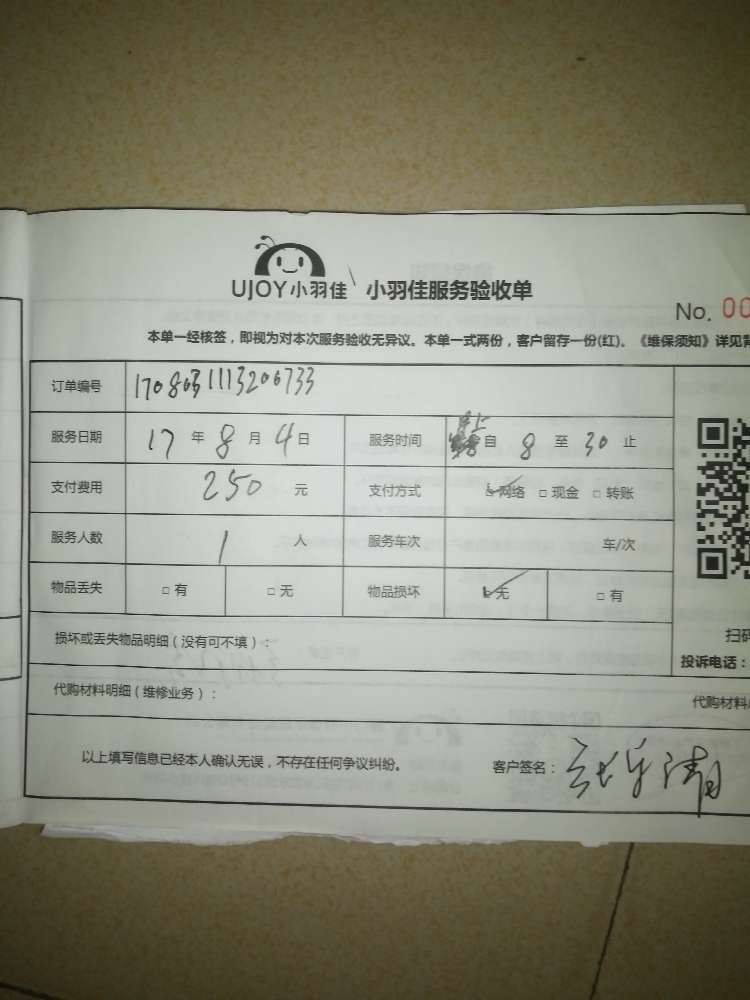 UJOY小羽佳 小羽佳服务验收单
No. 00
本单一经核签，即视为对本次服务验收无异议。本单一式两份，客户留存一份(红)。《维保须知》详见背
订单编号 1708031113206733
服务日期 17 年 8 月 4 日 服务时间 早上 自 8 至 30 止
支付费用 250 元 支付方式 ☑网络 □现金 □转账
服务人数 1 人 服务车次 车/次
物品丢失 □有 □无 物品损坏 ☑无 □有
扫码
损坏或丢失物品明细（没有可不填）：
投诉电话：
代购材料明细（维修业务）：
代购材料
以上填写信息已经本人确认无误，不存在任何争议纠纷。 客户签名：